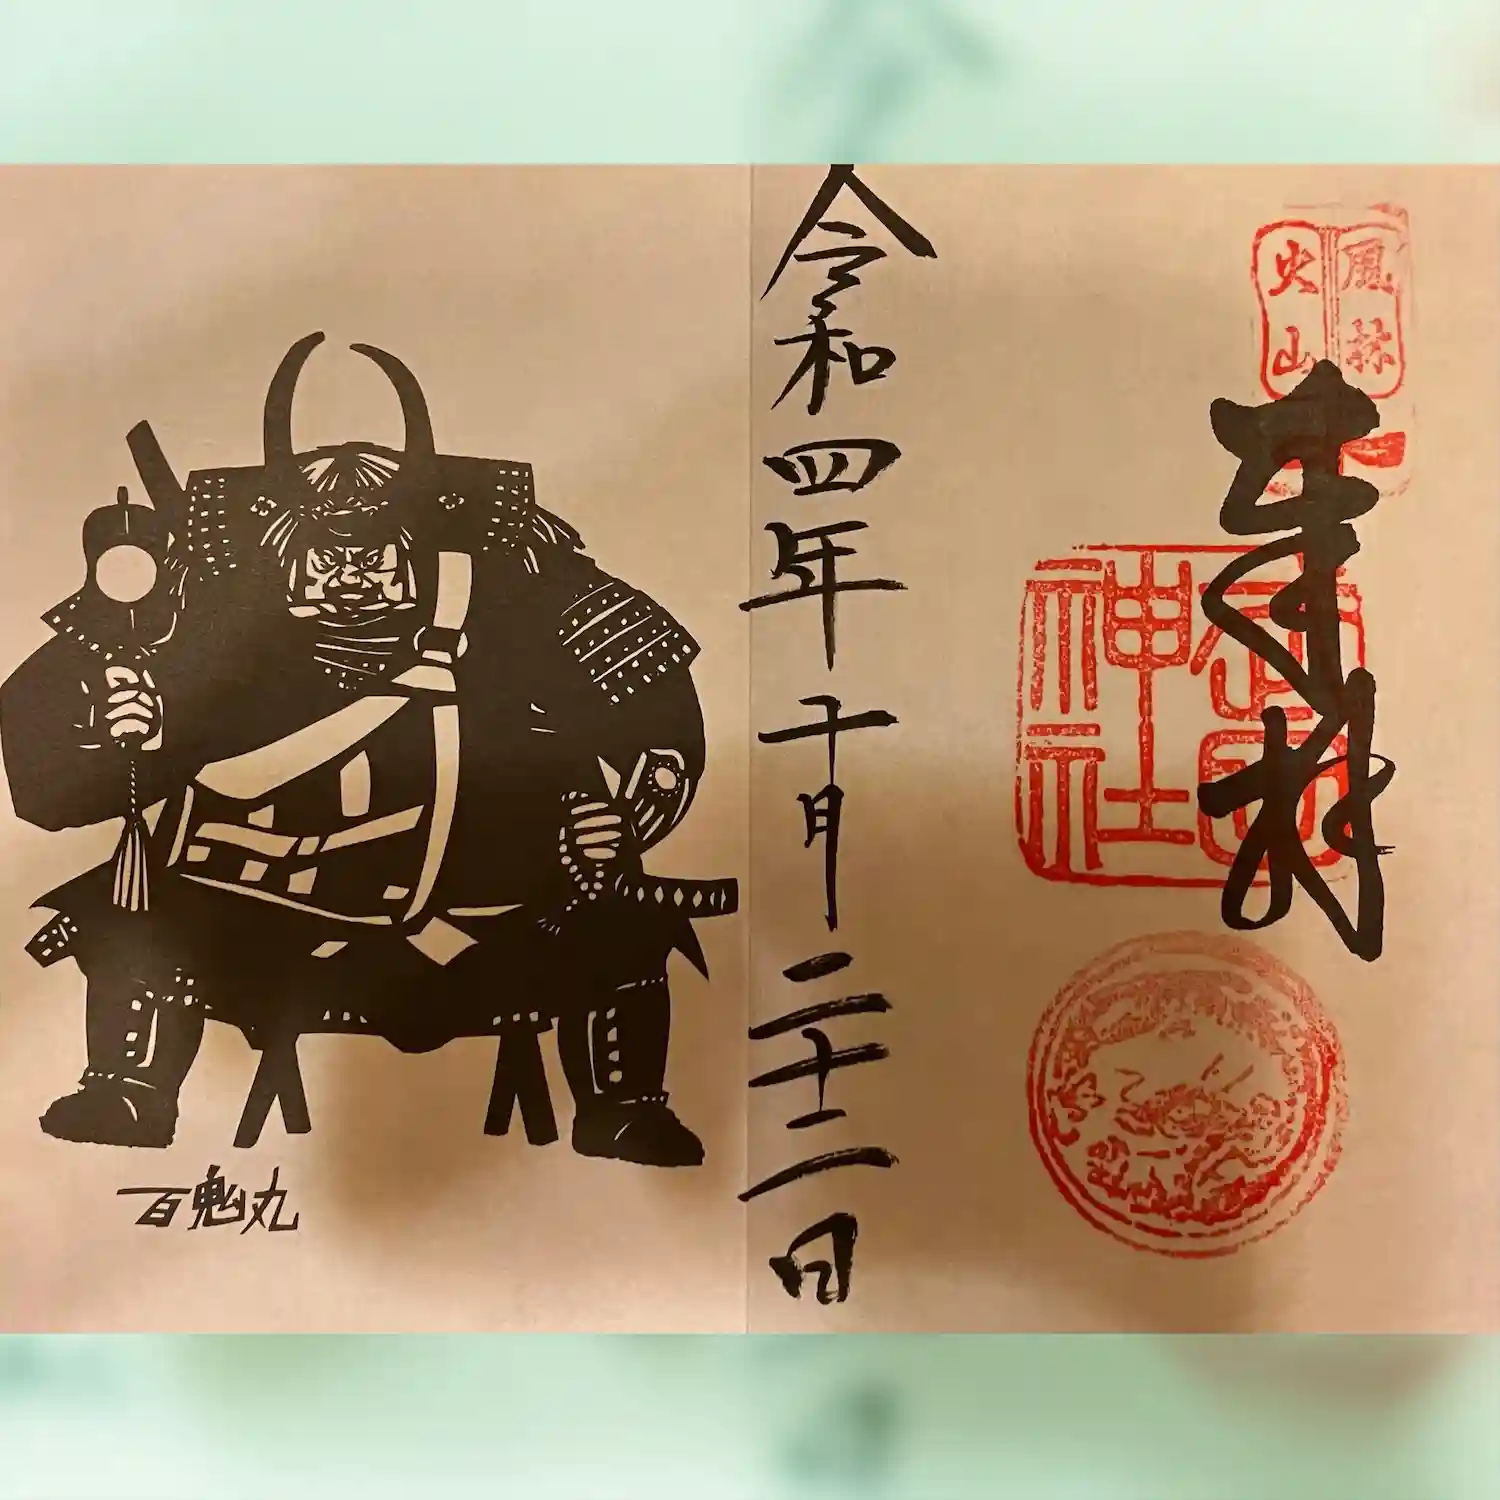 風林
火山
奉拝
武田
神社
令和四年十月二十二日
百鬼丸